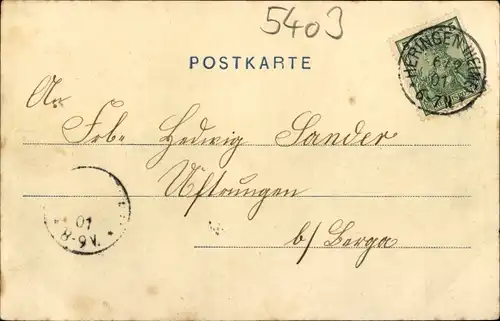 5403
POSTKARTE
HERINGEN (HELME)
An
Frl. Hedwig Sander
Uftrungen
b/ Berga
01
8-9V.